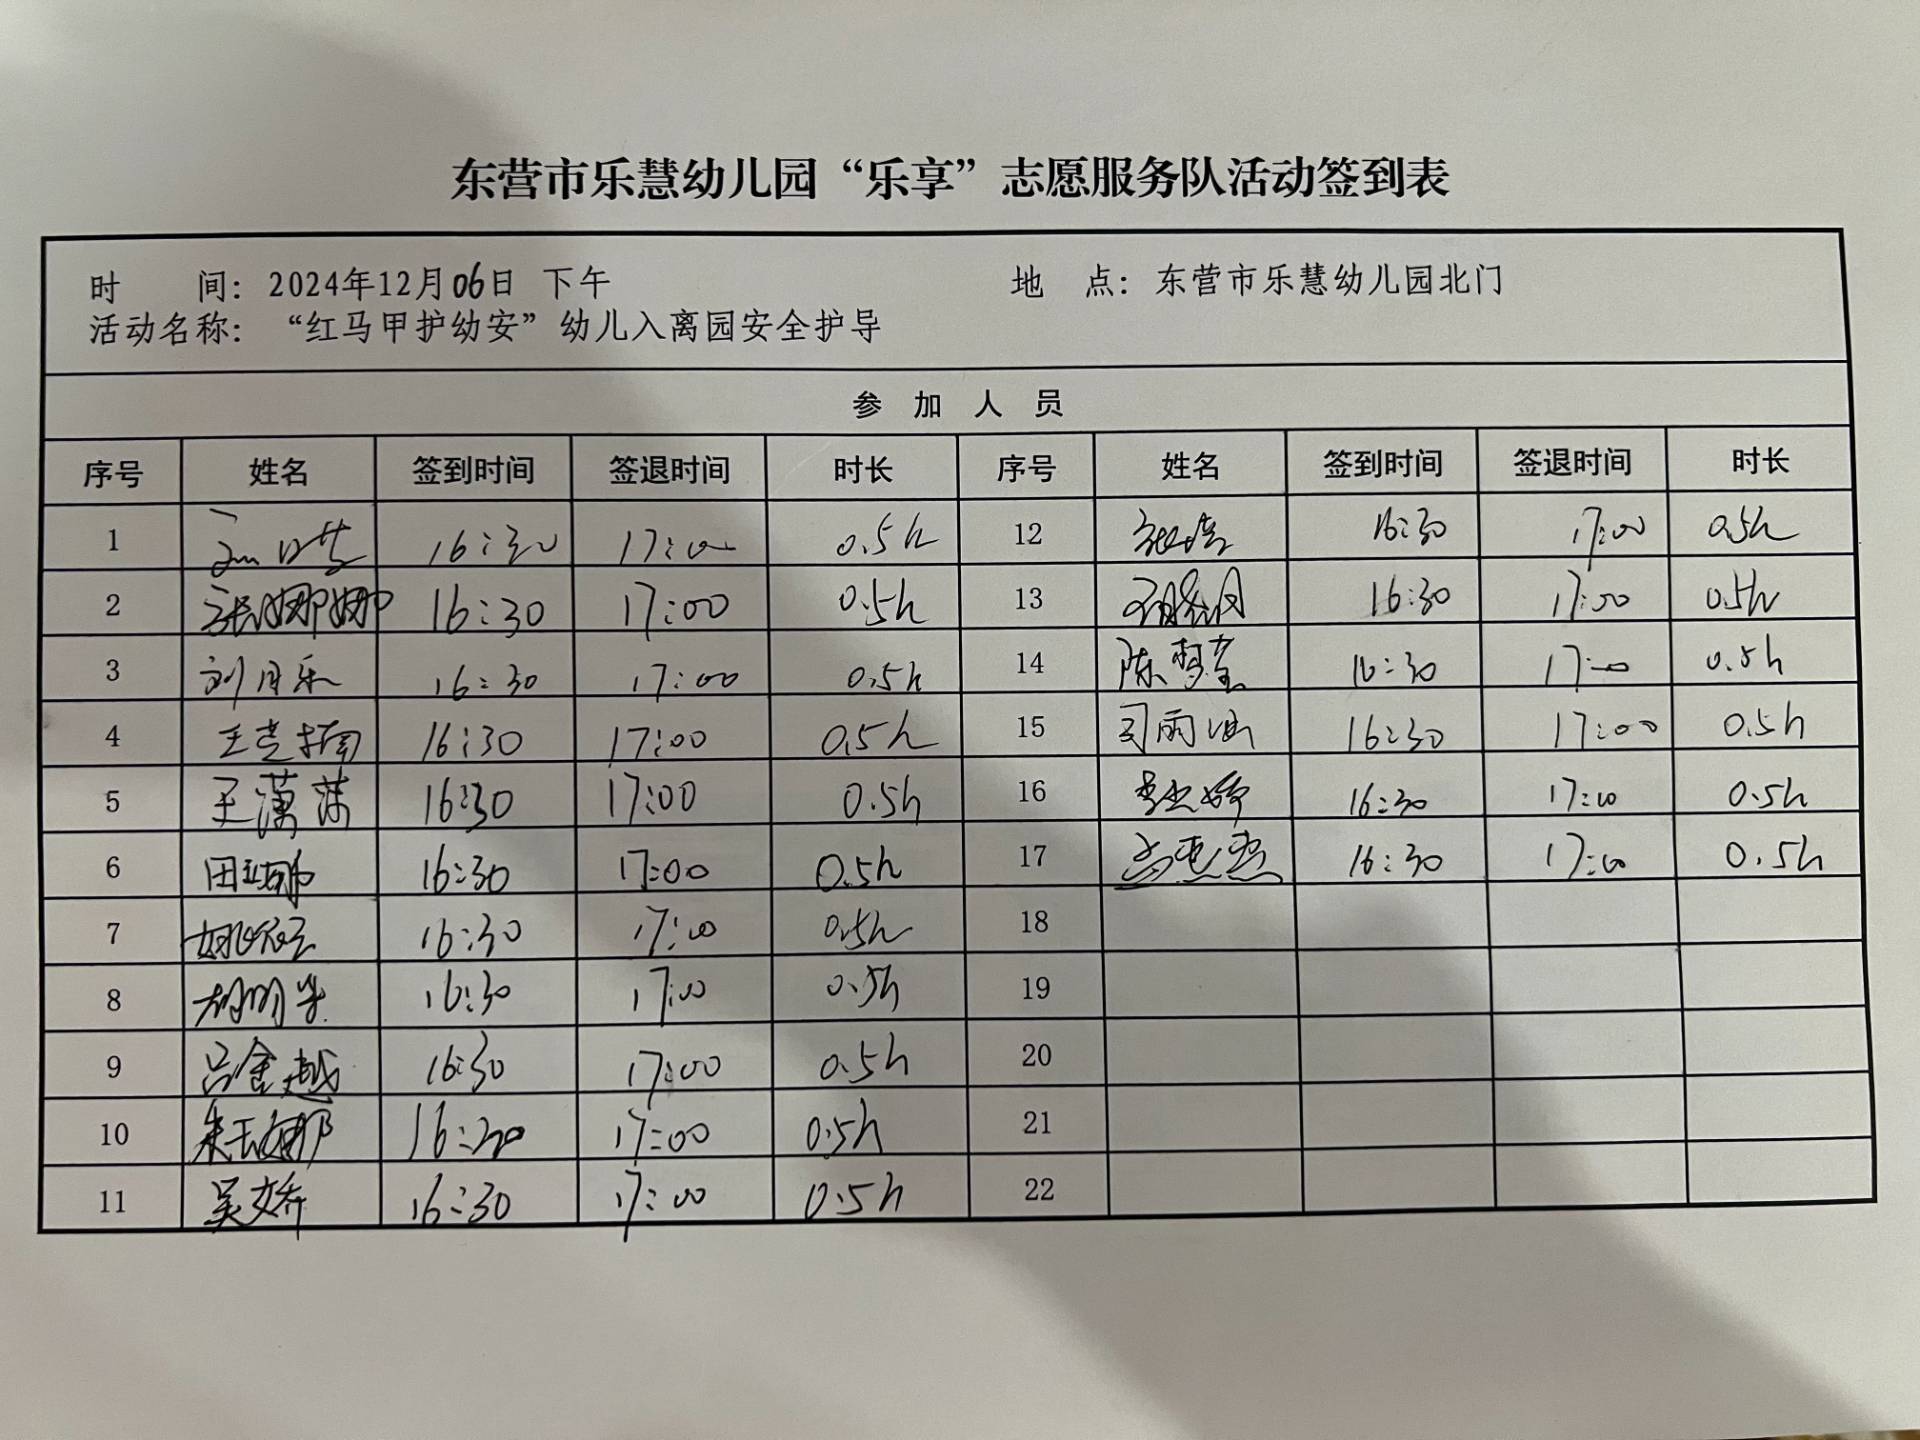 东营市乐慧幼儿园“乐享”志愿服务队活动签到表
时 间：2024年12月06日 下午 地 点：东营市乐慧幼儿园北门
活动名称：“红马甲护幼安”幼儿入离园安全护导
参 加 人 员
序号 姓名 签到时间 签退时间 时长 序号 姓名 签到时间 签退时间 时长
1 16:30 17:00 0.5h 12 16:30 17:00 0.5h
2 张娜娜 16:30 17:00 0.5h 13 16:30 17:00 0.5h
3 刘月乐 16:30 17:00 0.5h 14 陈梦莹 16:30 17:00 0.5h
4 16:30 17:00 0.5h 15 司雨 16:30 17:00 0.5h
5 王潇萍 16:30 17:00 0.5h 16 16:30 17:00 0.5h
6 田 16:30 17:00 0.5h 17 16:30 17:00 0.5h
7 16:30 17:00 0.5h 18
8 胡明 16:30 17:00 0.5h 19
9 吕金越 16:30 17:00 0.5h 20
10 朱玉娜 16:30 17:00 0.5h 21
11 吴文乔 16:30 17:00 0.5h 22